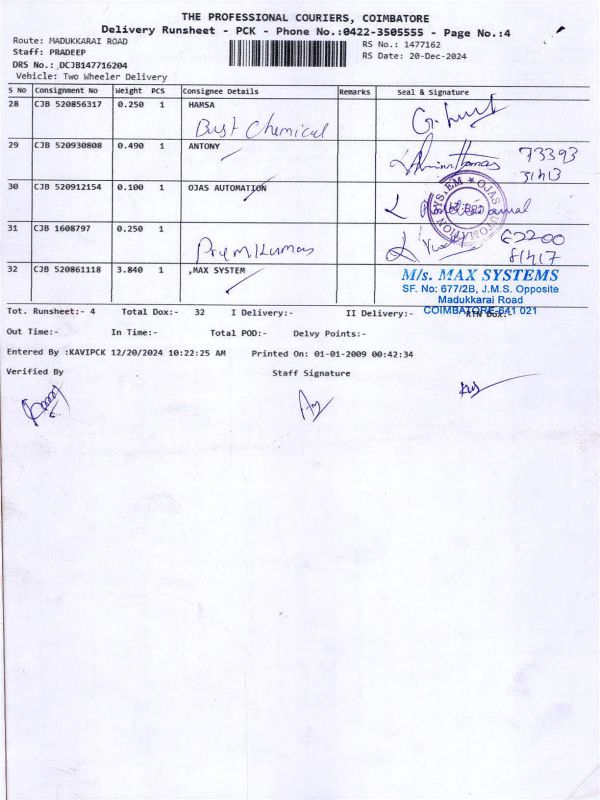 THE PROFESSIONAL COURIERS, COIMBATORE
Delivery Runsheet - PCK - Phone No.:0422-3505555 - Page No.:4
Route: MADUKKARAI ROAD
RS No.: 1477162
Staff: PRADEEP
RS Date: 20-Dec-2024
DRS No.: DCJB147716204
Vehicle: Two Wheeler Delivery
S No Consignment No Weight PCS Consignee Details Remarks Seal & Signature
28 CJB 520856317 0.250 1 HAMSA
Bust Chemical
29 CJB 520930808 0.490 1 ANTONY
73393
31413
30 CJB 520912154 0.100 1 OJAS AUTOMATION
OJAS AUTOMATION SYSTEM
31 CJB 1608797 0.250 1
Prem Kumar
63200
81417
32 CJB 520861118 3.840 1 ,MAX SYSTEM
M/s. MAX SYSTEMS
SF. No: 677/2B, J.M.S. Opposite
Madukkarai Road
COIMBATORE-641 021
Tot. Runsheet:- 4 Total Dox:- 32 I Delivery:- II Delivery:- RTN Dox:-
Out Time:- In Time:- Total POD:- Delvy Points:-
Entered By :KAVIPCK 12/20/2024 10:22:25 AM Printed On: 01-01-2009 00:42:34
Verified By Staff Signature